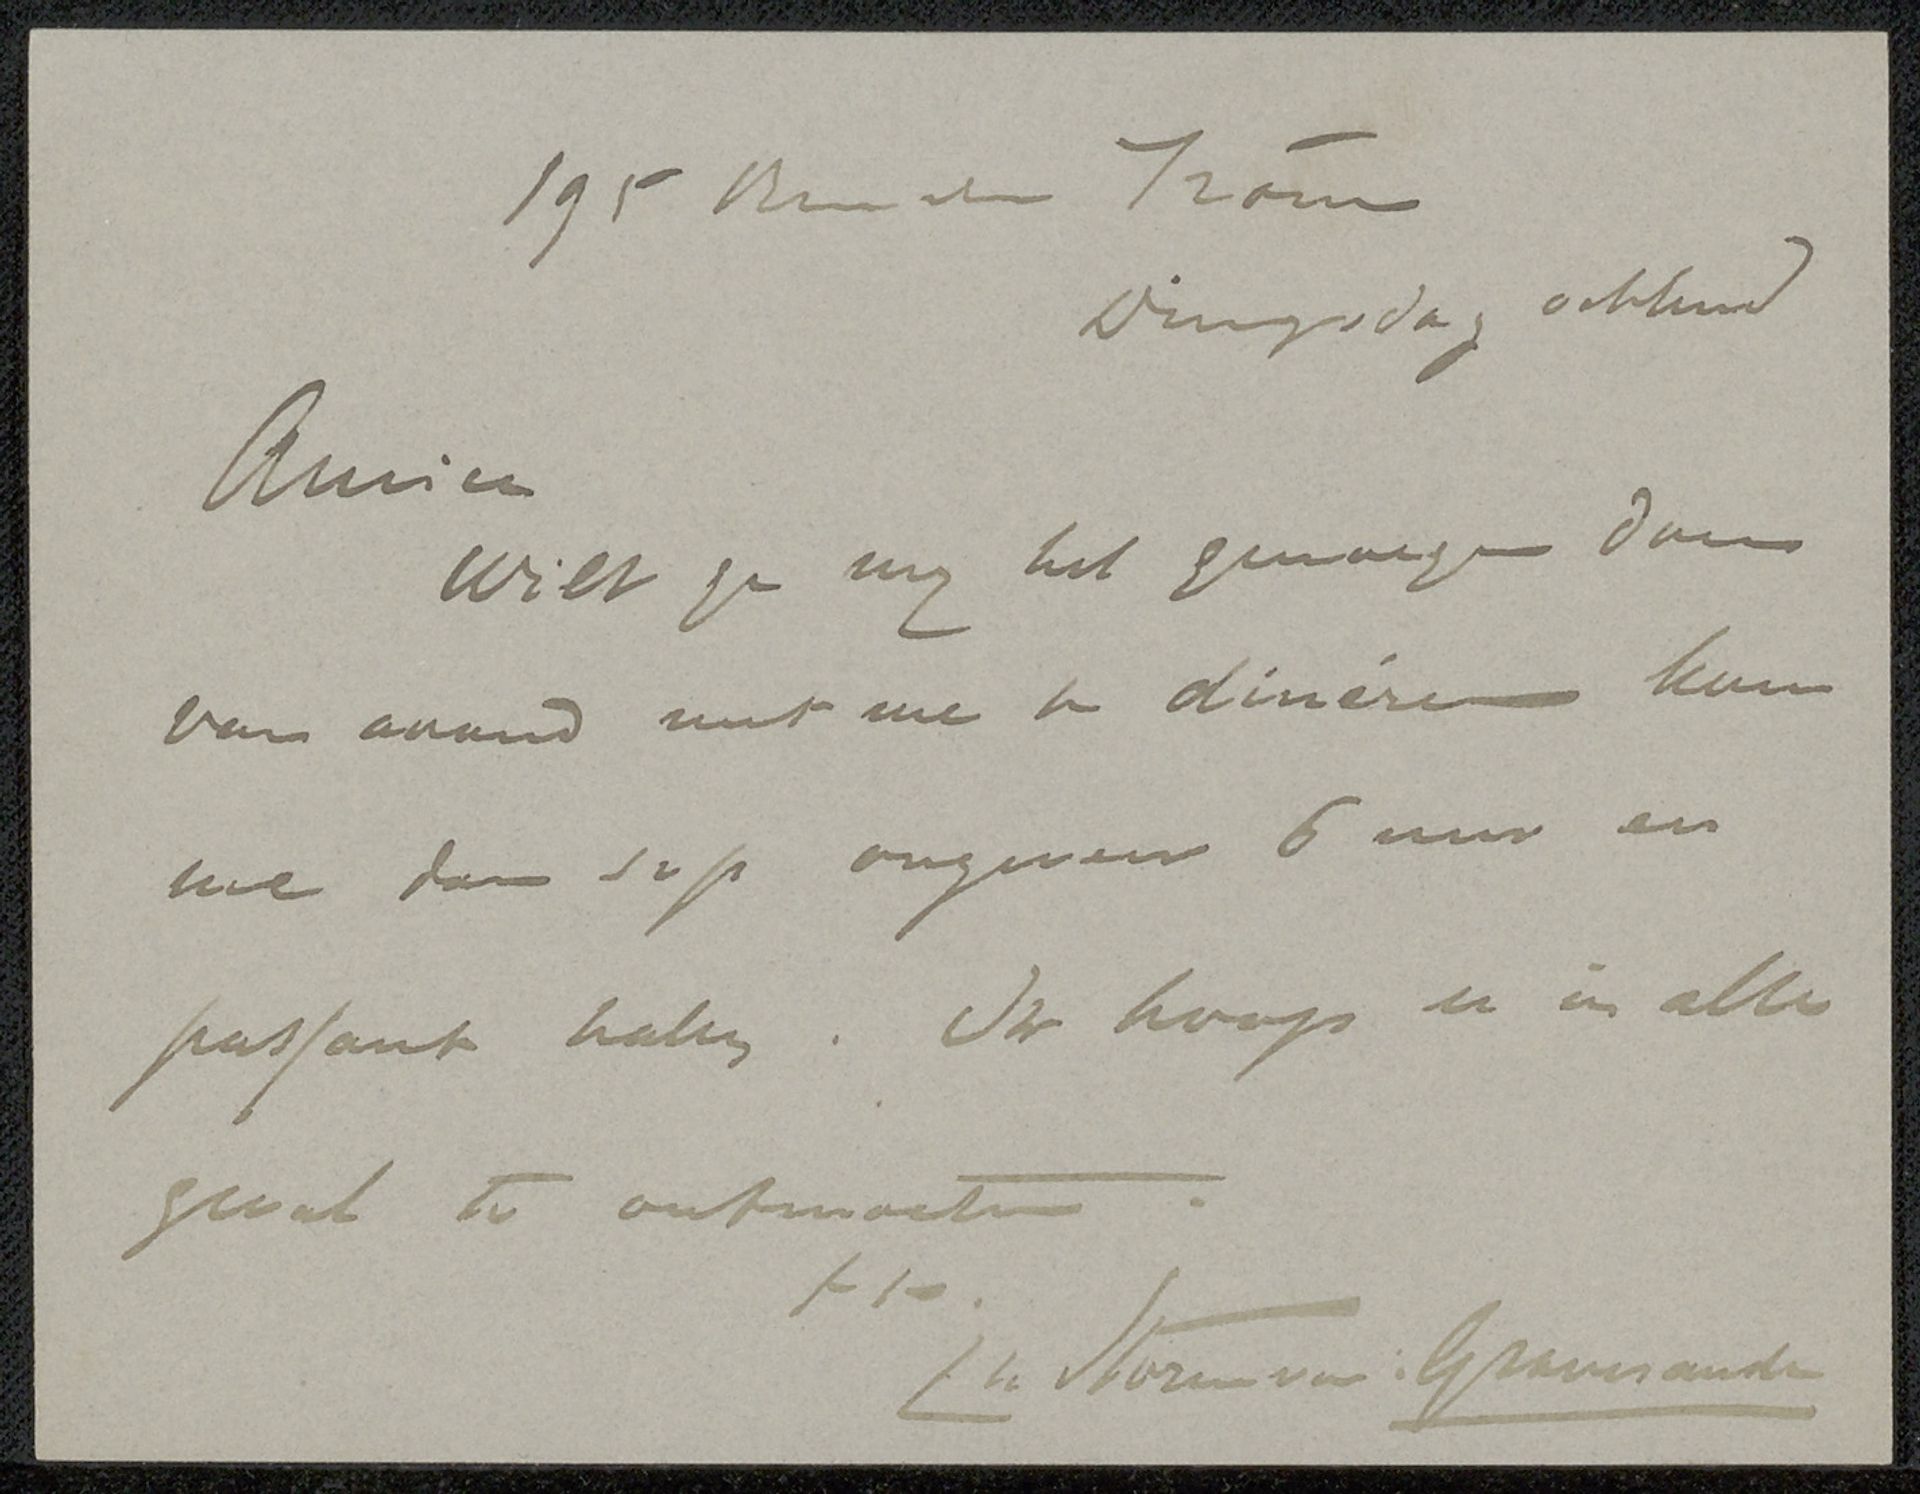 195 Rue du Trône
Dingsdag ochtend
Amice
Wilt ge my het genoegen doen
van avond met me te dinéren kom
me dan svp ongeveer 6 uur en
passant halen. Ik hoop u in alle
geval te ontmoeten.
tt.
Ch Storm van 'sGravesande